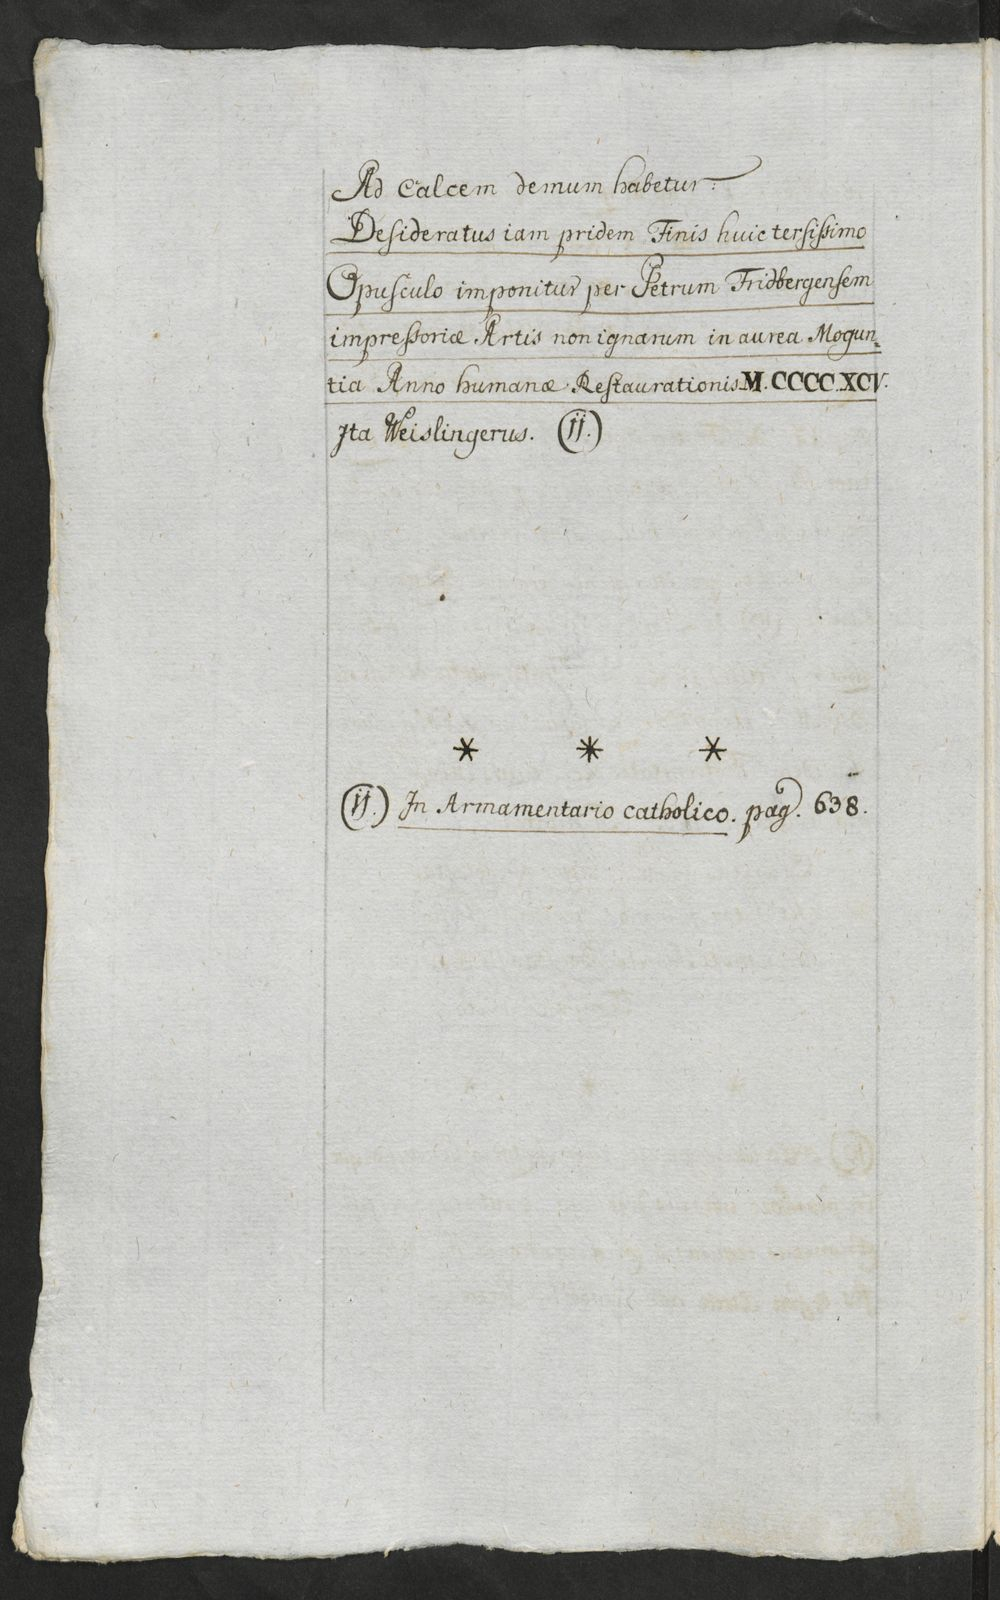 Ad Calcem demum habetur:
Desideratus iam pridem Finis huic tersissimo
Opusculo imponitur per Petrum Fridbergensem
impressoriæ Artis non ignarum in aurea Mogun=
tia Anno humanæ Restaurationis M.CCCC.XCV.
Ita Weislingerus. (II.)
* * *
(II.) In Armamentario catholico. pag. 638.